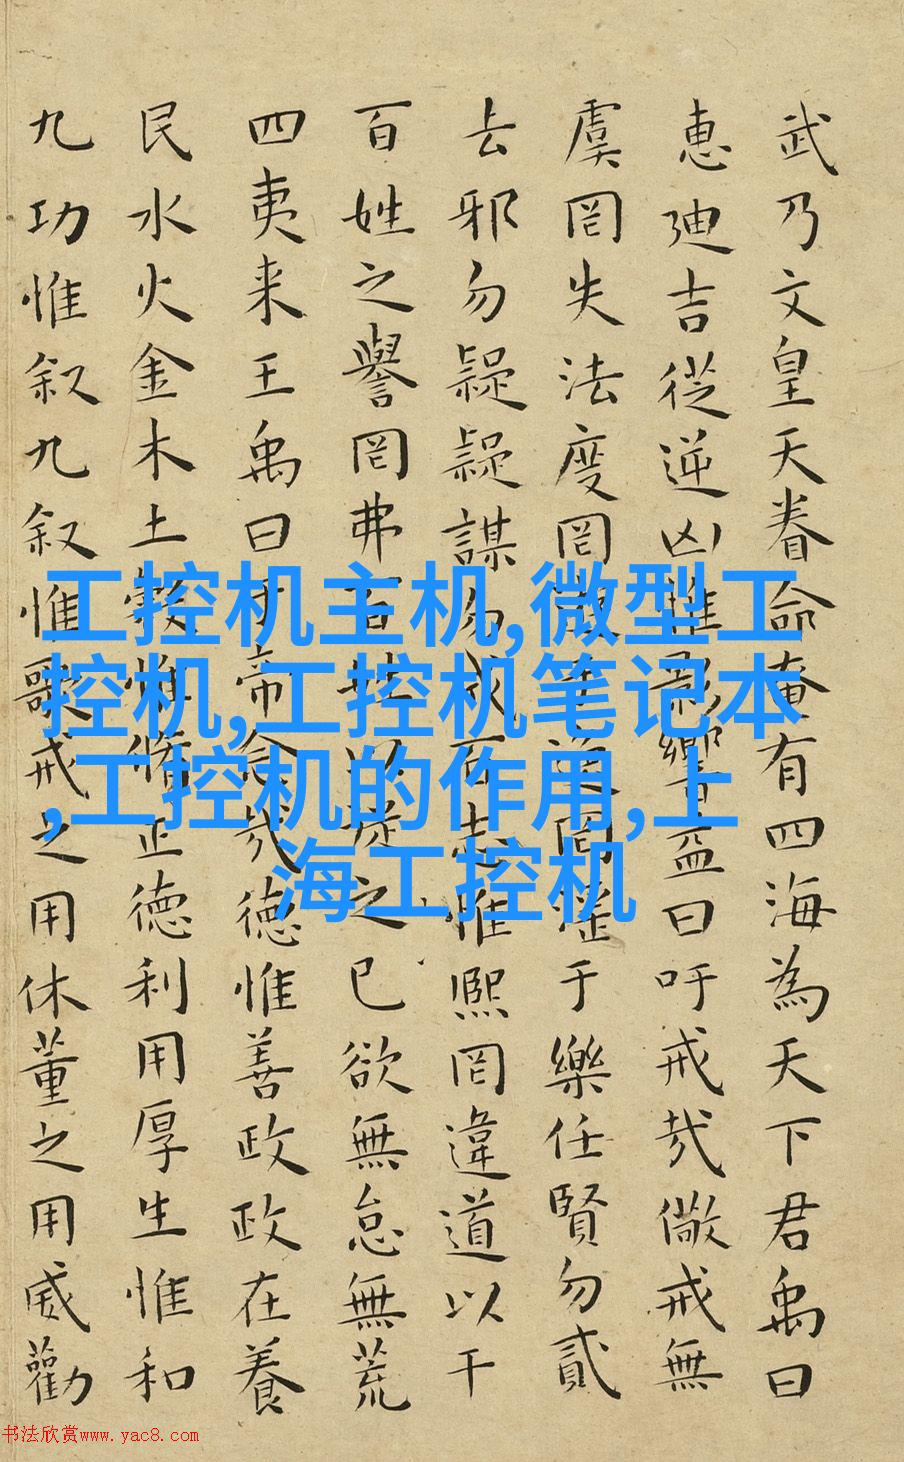 武乃文皇天眷命奄有四海為天下君禹曰
惠迪吉從逆凶惟影響益曰吁戒哉儆戒無
虞罔失法度罔于逸罔淫于樂任賢勿貳
去邪勿疑疑謀勿成百志惟熙罔違道以干
百姓之譽罔弗百姓以從之己欲無怠無荒
四夷来王禹曰於帝念哉德惟善政政在養
民水火金木土穀惟脩正德利用厚生惟和
九功惟叙九叙惟歌戒之用休董之用威勸
工控机主机,微型工
控机,工控机笔记本
,工控机的作用,上
海工控机
书法欣赏www.yac8.com